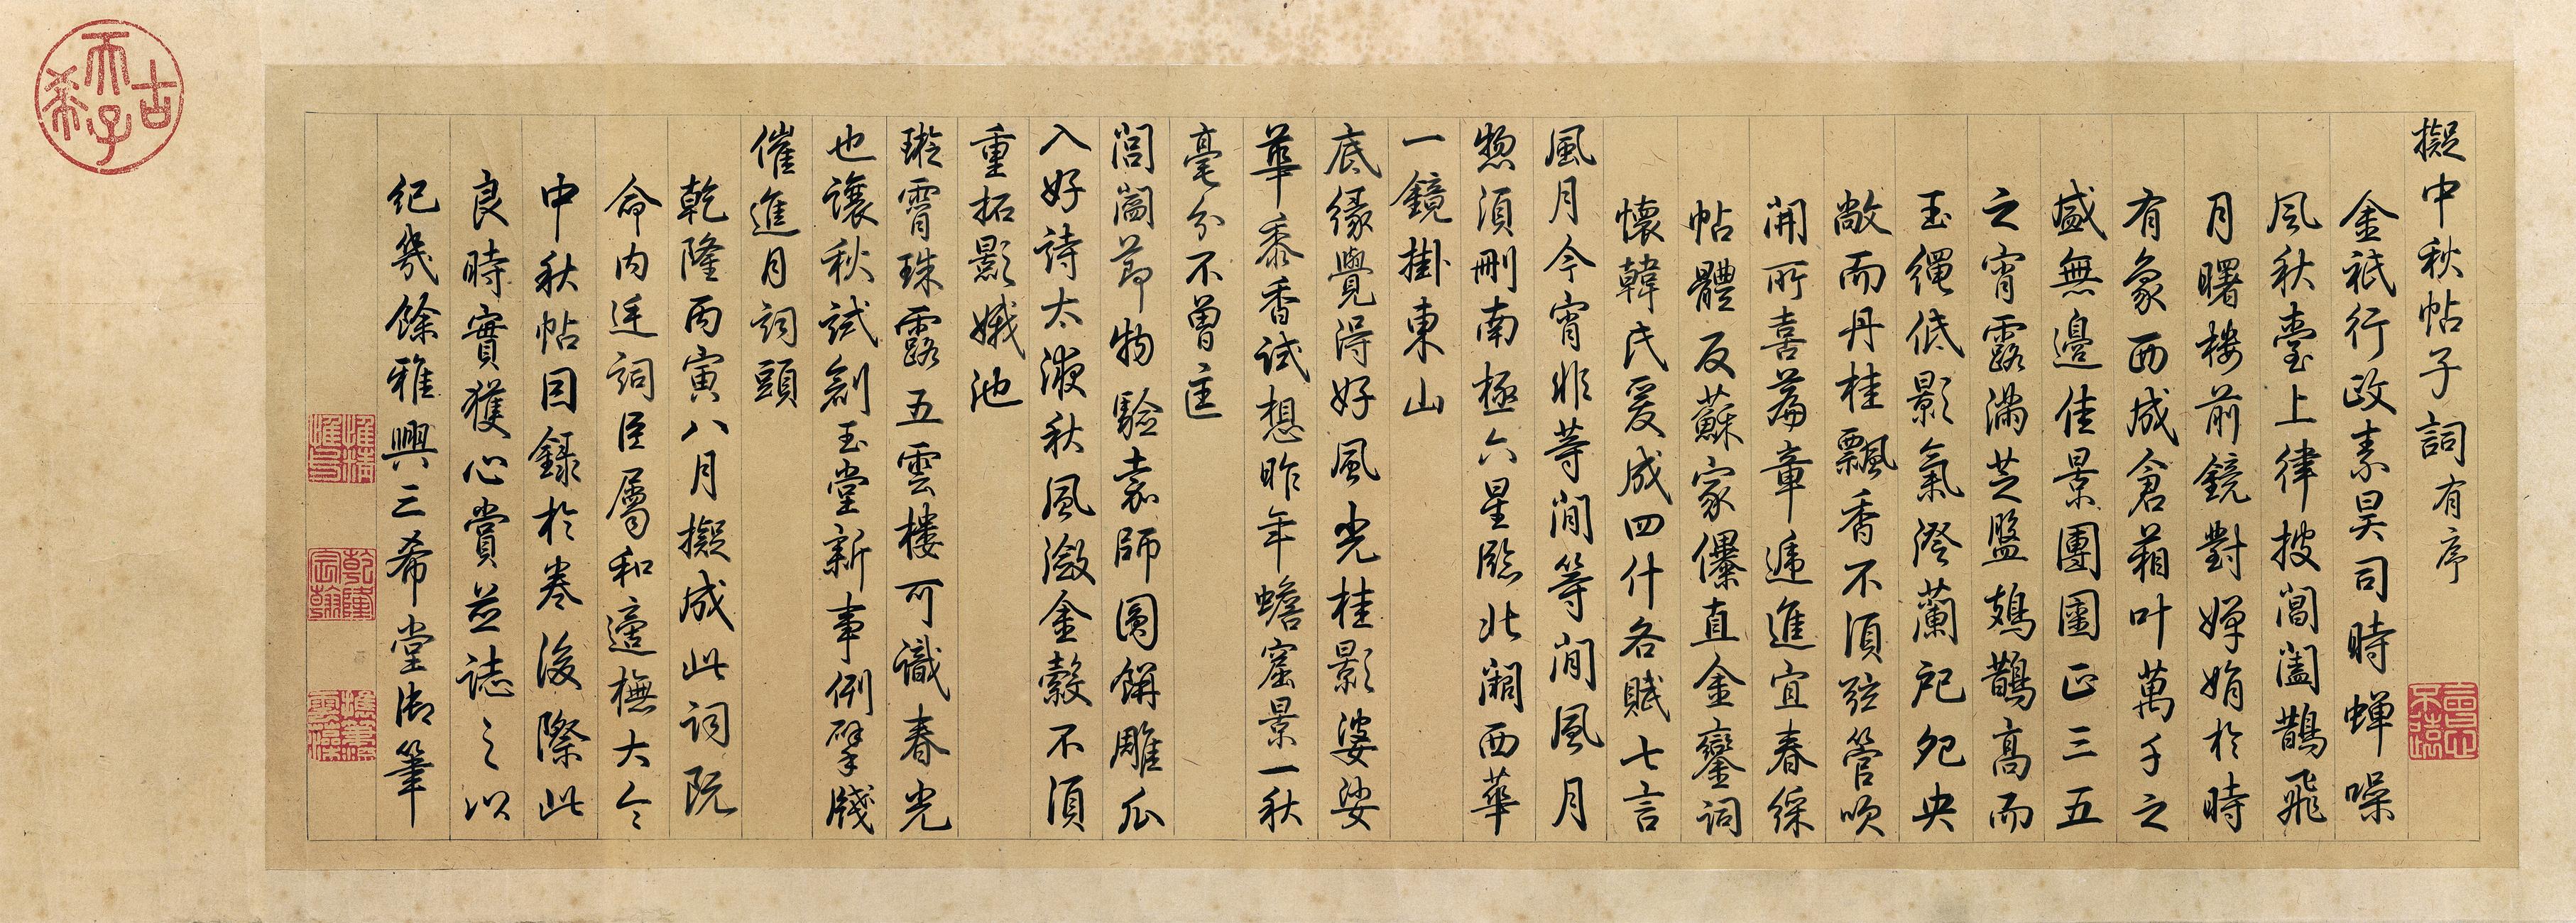 擬中秋帖子詞有序
金祇行政素昊司時蟬噪
風秋臺上律披閶闔鵲飛
月曙樓前鏡對嬋娟於時
有象西成倉葙叶萬千之
盛無邊佳景團圞正三五
之宵露滿芝盤鳷鵲高而
玉繩低影氣澄蘭戺兔央
敞而丹桂飄香不須弦管吹
開所喜篇章遞進宜春綵
帖體反蘇家儤直金鑾詞
懷韓氏爰成四什各賦七言
風月今宵非等閒等閒風月
惣須刪南極六星臨北闕西華
一鏡掛東山
底緣覺得好風光桂影婆娑
華黍香試想昨年蟾窟景一秋
毫分不曾匡
閶闔節物驗嘉師圓餅雕瓜
入好詩太液秋風瀲金縠不須
重拓影娥池
璇霄珠露五雲樓可識春光
也讓秋試創玉堂新事例擘牋
催進月詞頭
乾隆丙寅八月擬成此詞既
命內廷詞臣屬和適橅大令
中秋帖因錄於卷後際此
良時實獲心賞並誌之以
紀幾餘雅興三希堂御筆
古
天子
希
乾隆
宸翰